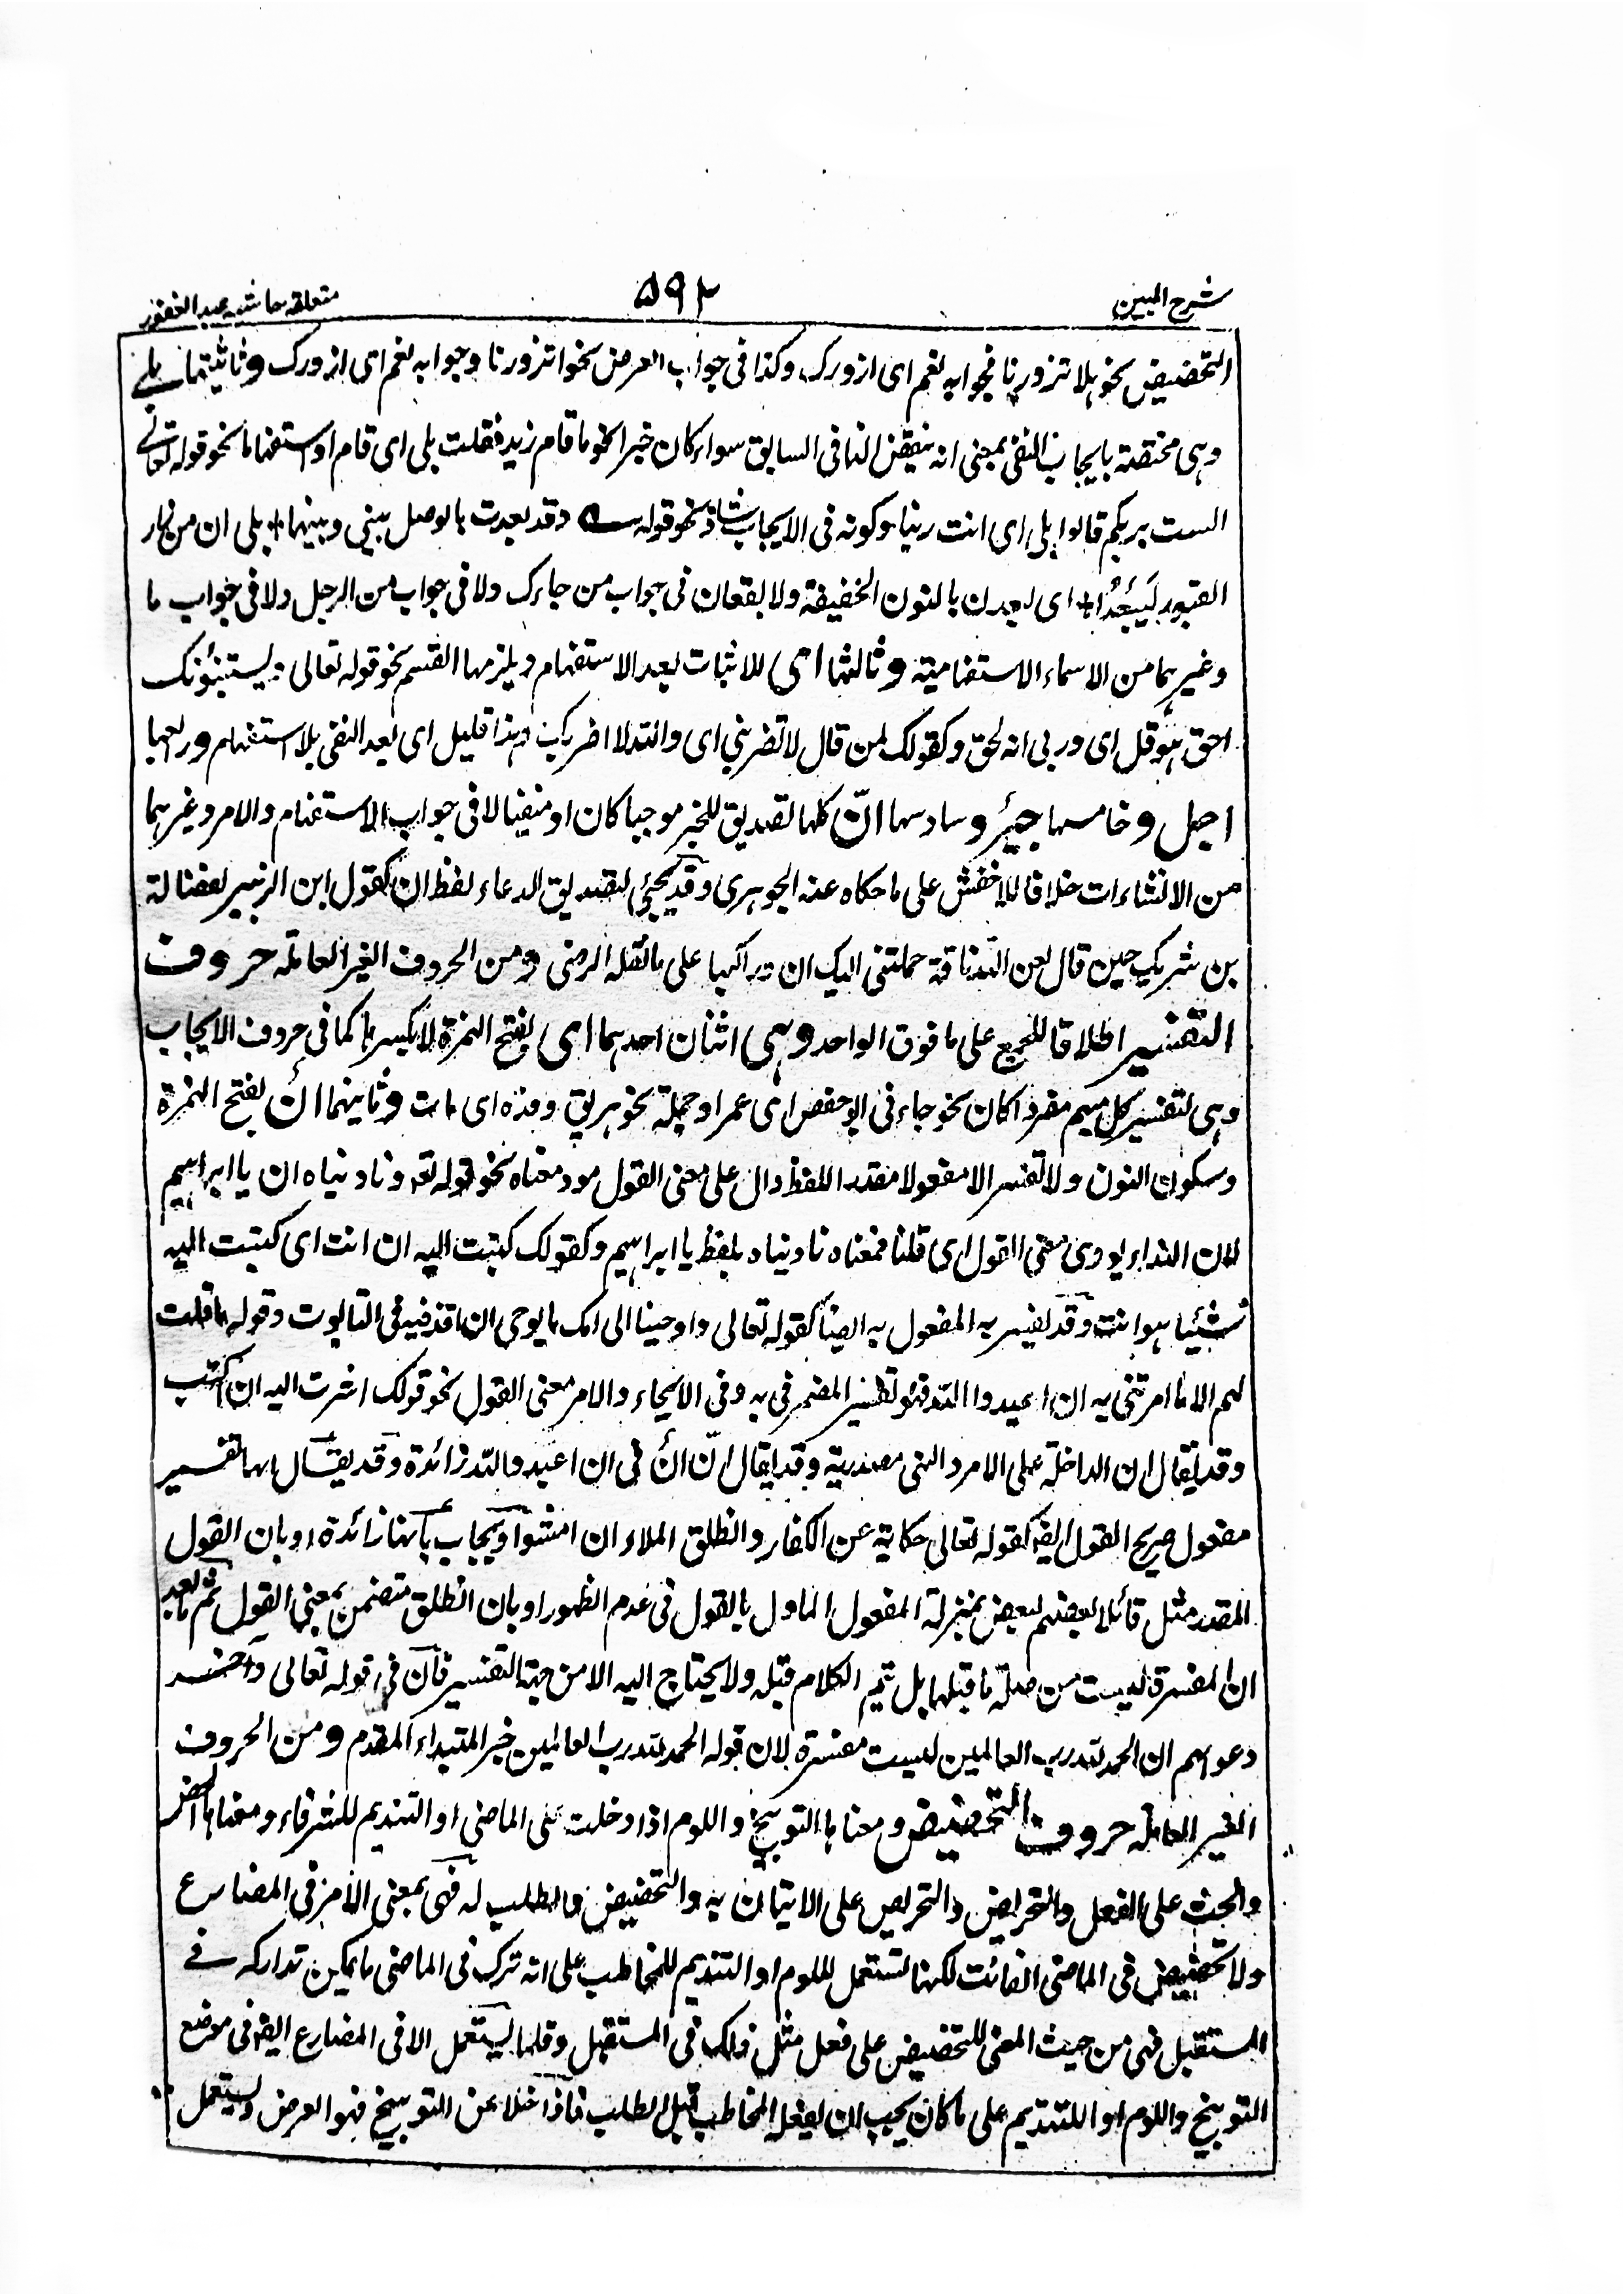 شرح المبین
۵۹۲
متعلقہ حاشیہ عبد الغفور
التحضيض نحو ہلا تزورنا فجوابہ نعم ای ازورک وکذا فی جواب العرض نحو الا تزورنا وجوابہ نعم ای ازورک وثانيتہا بلے
وہی مختصۃ بايجاب النفی بمعنی انہ ينقض النافی السابق سواء کان خبرا نحو ما قام زيد فقلت بلی ای قام او استفہاما نحو قولہ تعالے
الست بربکم قالوا بلی ای انت ربنا وکونہ فی الايجاب شاذ نحو قولہ وقد بعدت بالوصل بينی وبينہا بلی ان من زار
القبور لَيَبْعُدَا ای ليبعدن بالنون الخفيفۃ ولا يقعان فی جواب من جاءک ولا فی جواب من الرجل ولا فی جواب ما
وغيرہما من الاسماء الاستفہاميۃ وثالثہا ای للاثبات بعد الاستفہام ويلزمہا القسم نحو قولہ تعالی ويستنبؤنک
احق ہو قل ای وربی انہ لحق وکقولک لمن قال لا تضربنی ای واللہ لا اضربک وہذا قليل ای بعد النفی بلا استفہام ورابعہا
اجل وخامسہا جيرِ وسادسہا انّ کلہا لتصديق للخبر موجبا کان او منفيا لا فی جواب الاستفہام والامر وغيرہما
من الانشاءات خلافا للاخفش علی ما حکاہ عنہ الجوہری وقد يجئ لتصديق الدعاء لفظ ان کقول ابن الزبير لفضالۃ
بن شريک حين قال لعن اللہ ناقۃ حملتنی اليک ان وراکبہا علی ما نقلہ الرضی ومن الحروف الغير العاملہ حروف
التفسير اطلاقا للجمع علی ما فوق الواحد وہی اثنان احدہما ای بفتح الہمزۃ لا بکسرہا کما فی حروف الايجاب
وہی لتفسير کل مبہم مفردا کان نحو جاء فی ابو حفص ای عمر او جملۃ نحو ہريق وفدہ ای مات وثانيہما اَن بفتح الہمزۃ
وسکون النون ولا تفسر الا مفعولا مقدرا للفظ دال علی معنی القول مود معناہ نحو قولہ تعہ وناديناہ ان يا ابراہيم
لان النداء يودی معنی القول ای قلنا فمعناہ ناديناہ بلفظ يا ابراہيم وکقولک کتبت اليہ ان انت ای کتبت اليہ
شيئا ہو انت وقد يفسر بہ المفعول بہ ايضا کقولہ تعالی واوحينا الی امک ما يوحی ان اقذفيہ فی التابوت وقولہ ما قلت
لہم الا ما امرتنی بہ ان اعبدوا اللہ فہو تفسير المضمر فی بہ وفی الايحاء والامر معنی القول نحو قولک اشرت اليہ ان اکتب
وقد يقال ان الداخلۃ علی الامر والنہی مصدريۃ وقد يقال انّ اَن فی ان اعبدوا اللہ زائدۃ وقد يقال انہا تفسير
مفعول صريح القول ايضہ کقولہ تعالی حکايۃ عن الکفار وانطلق الملاء ان امشوا ويجاب بانہا زائدۃ او بان القول
المقدر مثل قائلا بعضہم لبعض بمنزلۃ المفعول الماول بالقول فی عدم الظہور او بان انطلق متضمن بمعنی القول ثم ما بعد
ان المفسرۃ ليست من صلۃ ما قبلہا بل يتم الکلام قبلہ ولا يحتاج اليہ الا من جہۃ التفسير فان فی قولہ تعالی وآخر
دعوٰہم ان الحمد للہ رب العالمين ليست مفسرۃ لان قولہ الحمد للہ رب العالمين خبر المبتداء المقدم ومن الحروف
الغير العاملہ حروف التحضيض ومعناہا التوبيخ واللوم اذا دخلت علی الماضی او التنديم للشرفاء ومعناہا الحض
والحث علی الفعل والتحريض والتحريص علی الاتيان بہ والتحضيض والطلب لہ فہی بمعنی الامر فی المضارع
ولا تحضيض فی الماضی الفائت لکنہا تستعمل للوم او التنديم للمخاطب علی انہ ترک فی الماضی ما يمکن تدارکہ فے
المستقبل فہی من حيث المعنی للتحضيض علی فعل مثل ذلک فی المستقبل وقلما يستعمل الا فی المضارع ايضہ فی موضع
التوبيخ واللوم او اللتنديم علی ما کان يجب ان يفعلہ المخاطب قبل الطلب فاذا خلا عن التوبيخ فہو العرض ويستعمل